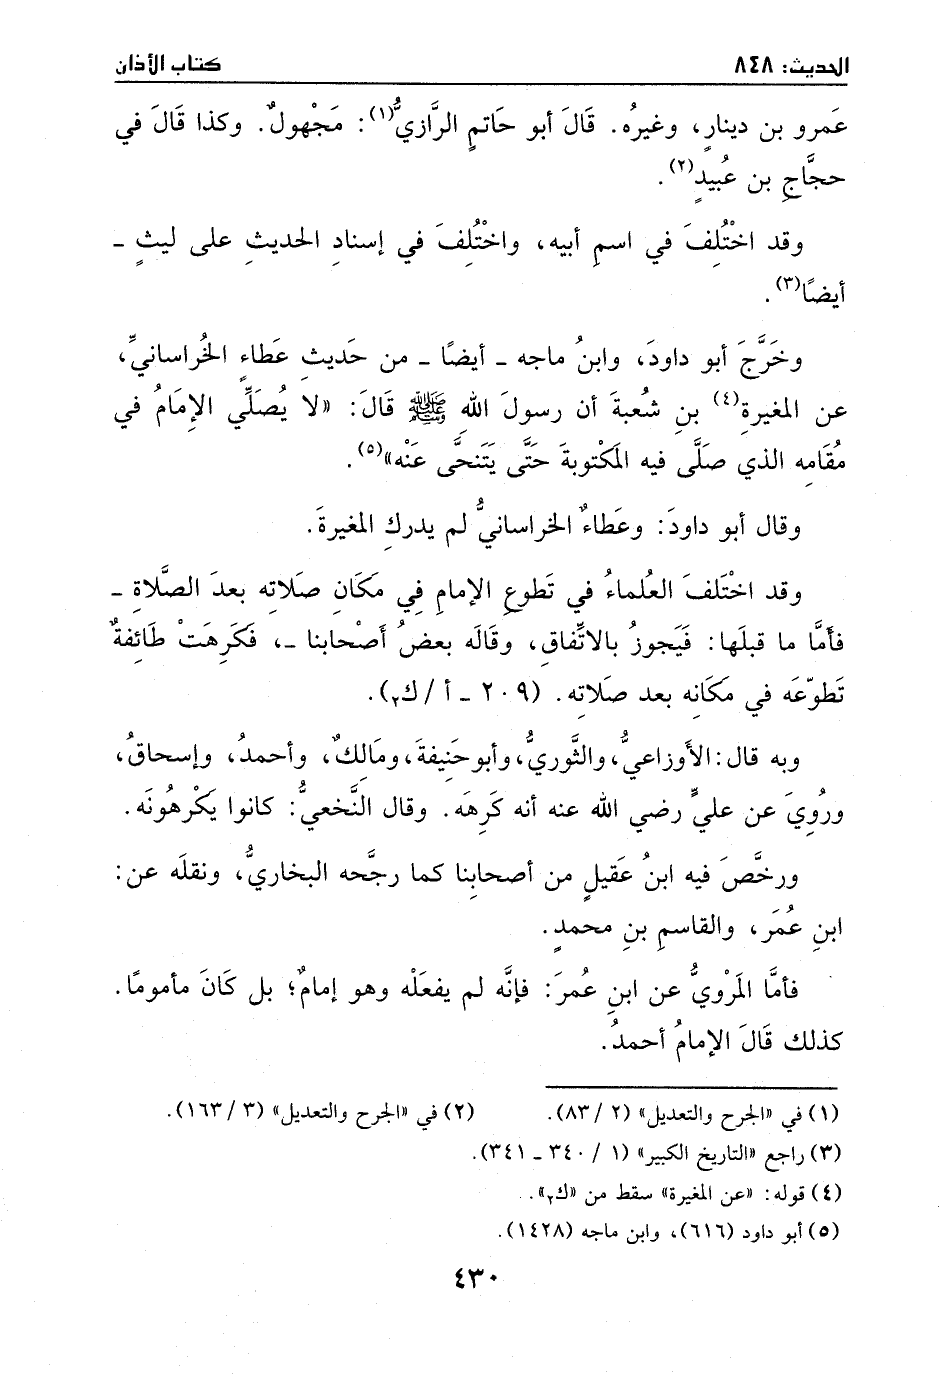 الحديث: ٨٤٨
كتاب الأذان
عَمرو بن دينارٍ، وغيرُه. قَالَ أبو حَاتمٍ الرَّازيُّ(١): مَجْهولٌ. وكذا قَالَ في
حجَّاجِ بن عُبيدٍ(٢).
وقد اخْتُلِفَ في اسمِ أبيه، واخْتُلِفَ في إسنادِ الحديثِ على ليثٍ -
أيضًا(٣).
وخَرَّجَ أبو داودَ، وابنُ ماجه - أيضًا - من حَديثِ عَطاءٍ الخُراسانيِّ،
عن المغيرةِ(٤) بنِ شُعبةَ أن رسولَ اللهِ ﷺ قَالَ: «لا يُصَلِّي الإمَامُ في
مُقَامِه الذي صَلَّى فيه المَكْتوبةَ حَتَّى يَتَنحَّى عَنْه»(٥).
وقال أبو داودَ: وعَطاءٌ الخراسانيُّ لم يدركِ المغيرةَ.
وقد اخْتَلفَ العُلماءُ في تَطوعِ الإمامِ فِي مَكَانِ صلَاتِه بعدَ الصَّلاةِ -
فأمَّا ما قبلَها: فَيَجوزُ بالاتِّفاقِ، وقَالَه بعضُ أصْحابنا -، فَكَرِهَتْ طَائفةٌ
تَطوّعَه في مَكَانِه بعد صلَاتِه. (٢٠٩ - أ / ك٢).
وبه قال: الأوزاعيُّ، والثَّوريُّ، وأبو حَنِيفةَ، ومَالِكٌ، وأحمدُ، وإسحاقُ،
ورُويَ عن عليٍّ رضي الله عنه أنه كَرِهَه. وقال النَّخعيُّ: كانوا يَكْرهُونَه.
ورخَّصَ فيه ابنُ عَقيلٍ من أصحابِنا كما رجَّحه البخاريُّ، ونقلَه عن:
ابنِ عُمَر، والقاسمِ بنِ محمدٍ.
فأمَّا المَرْويُّ عن ابنِ عُمرَ: فإنَّه لم يفعَلْه وهو إمامٌ؛ بل كَانَ مأمومًا.
كذلك قَالَ الإمامُ أحمدُ.
(١) في «الجرح والتعديل» (٢ / ٨٣).
(٢) في «الجرح والتعديل» (٣ / ١٦٣).
(٣) راجع «التاريخ الكبير» (١ / ٣٤٠ - ٣٤١).
(٤) قوله: «عن المغيرة» سقط من «ك٢».
(٥) أبو داود (٦١٦)، وابن ماجه (١٤٢٨).
٤٣٠